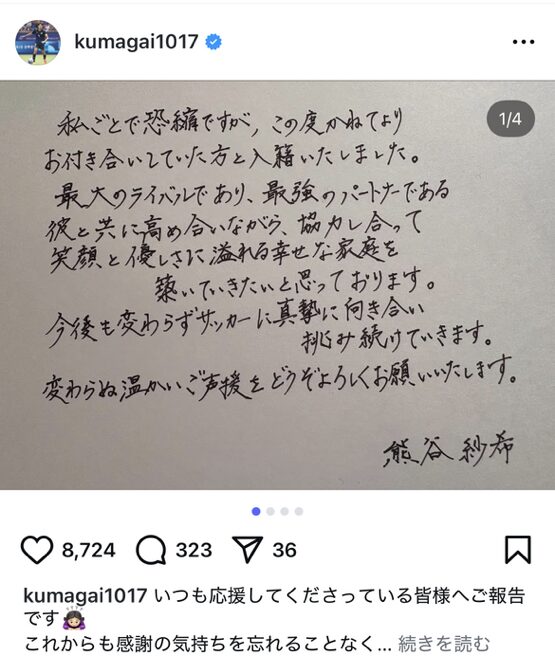 kumagai1017
1/4
私ごとで恐縮ですが、この度かねてより
お付き合いしていた方と入籍いたしました。
最大のライバルであり、最強のパートナーである
彼と共に高め合いながら、協力し合って
笑顔と優しさに溢れる幸せな家庭を
築いていきたいと思っております。
今後も変わらずサッカーに真摯に向き合い
挑み続けていきます。
変わらぬ温かいご声援をどうぞよろしくお願いいたします。
熊谷 紗希
8,724
323
36
kumagai1017 いつも応援してくださっている皆様へご報告
です🙇🏻‍♀️
これからも感謝の気持ちを忘れることなく... 続きを読む